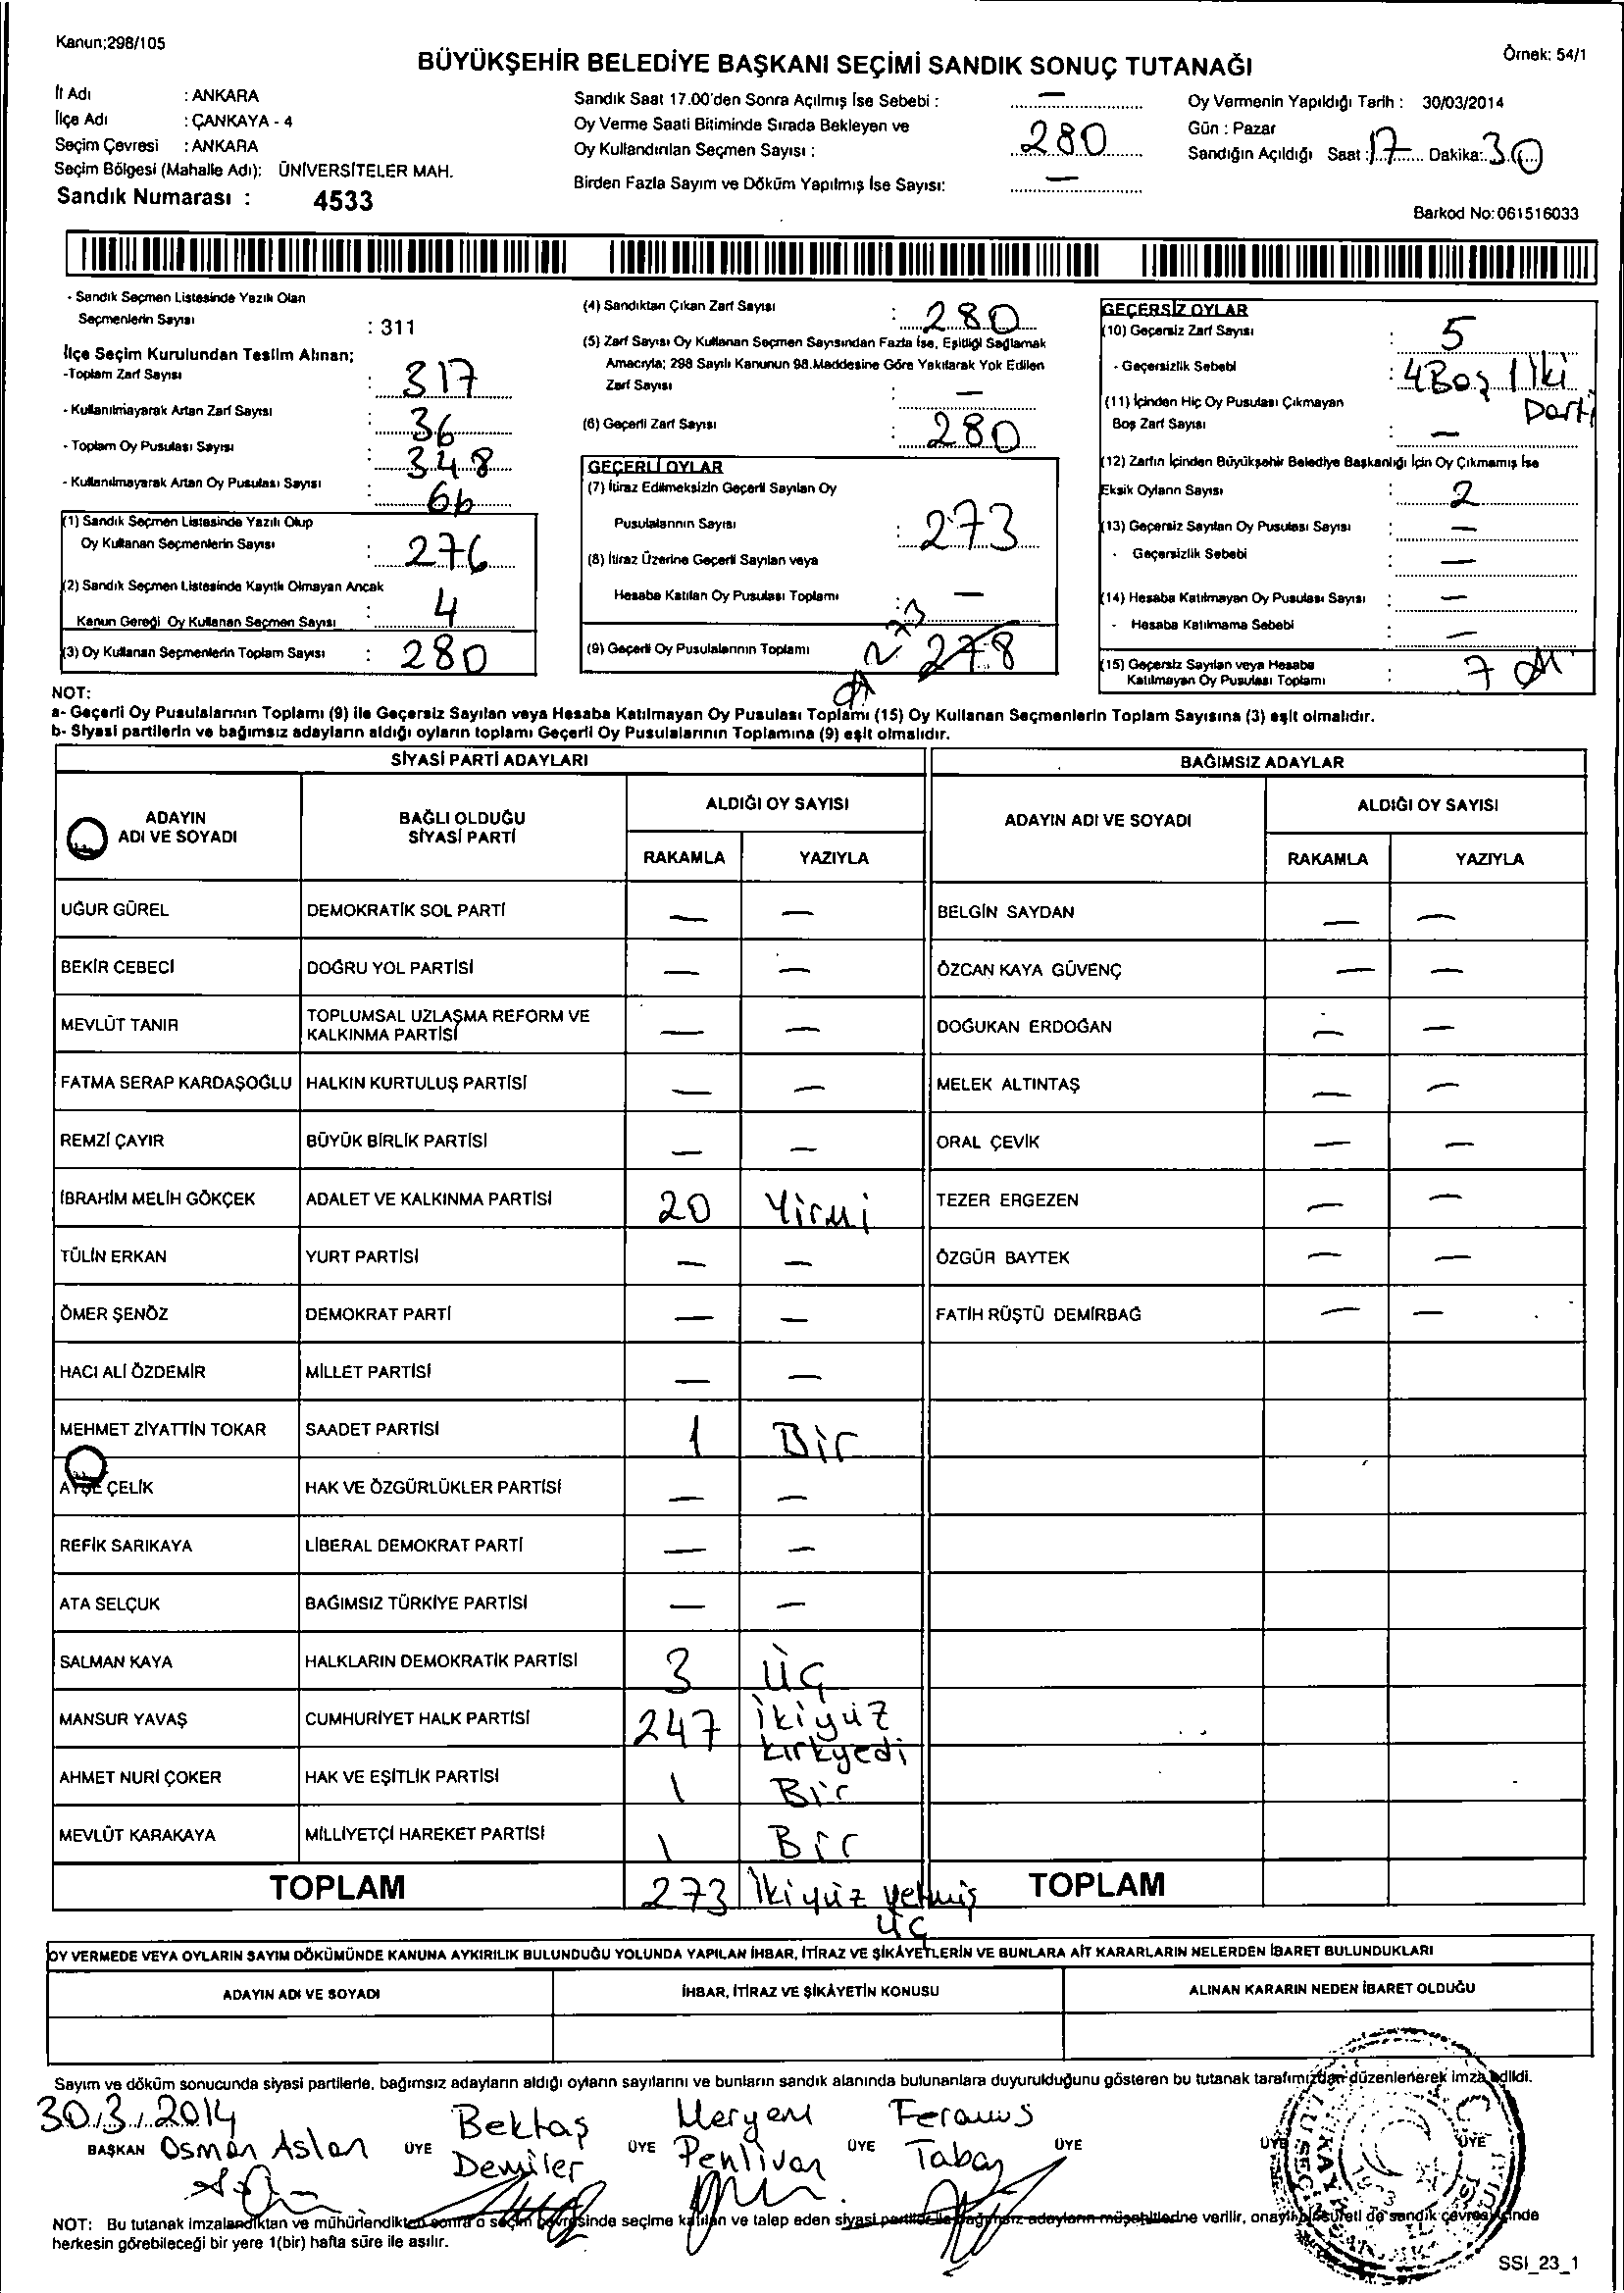 Kanun;298/105
Örnek: 54/1
BÜYÜKŞEHİR BELEDİYE BAŞKANI SEÇİMİ SANDIK SONUÇ TUTANAĞI
İl Adı : ANKARA
İlçe Adı : ÇANKAYA - 4
Seçim Çevresi : ANKARA
Seçim Bölgesi (Mahalle Adı): ÜNİVERSİTELER MAH.
Sandık Numarası : 4533
Sandık Saat 17.00'den Sonra Açılmış İse Sebebi : —
Oy Verme Saati Bitiminde Sırada Bekleyen ve
Oy Kullandırılan Seçmen Sayısı : 280
Birden Fazla Sayım ve Döküm Yapılmış İse Sayısı: —
Oy Vermenin Yapıldığı Tarih : 30/03/2014
Gün : Pazar
Sandığın Açıldığı Saat : 17 Dakika: 30
Barkod No:061516033
- Sandık Seçmen Listesinde Yazılı Olan
Seçmenlerin Sayısı : 311
İlçe Seçim Kurulundan Teslim Alınan;
-Toplam Zarf Sayısı : 317
- Kullanılmayarak Artan Zarf Sayısı : 36
- Toplam Oy Pusulası Sayısı : 348
- Kullanılmayarak Artan Oy Pusulası Sayısı : 66
(1) Sandık Seçmen Listesinde Yazılı Olup
Oy Kullanan Seçmenlerin Sayısı : 276
(2) Sandık Seçmen Listesinde Kayıtlı Olmayan Ancak
Kanun Gereği Oy Kullanan Seçmen Sayısı : 4
(3) Oy Kullanan Seçmenlerin Toplam Sayısı : 280
(4) Sandıktan Çıkan Zarf Sayısı : 280
(5) Zarf Sayısı Oy Kullanan Seçmen Sayısından Fazla İse, Eşitliği Sağlamak
Amacıyla; 298 Sayılı Kanunun 98.Maddesine Göre Yakılarak Yok Edilen
Zarf Sayısı : —
(6) Geçerli Zarf Sayısı : 280
GEÇERLİ OYLAR
(7) İtiraz Edilmeksizin Geçerli Sayılan Oy
Pusulalarının Sayısı : 273
(8) İtiraz Üzerine Geçerli Sayılan veya
Hesaba Katılan Oy Pusulası Toplamı : —
(9) Geçerli Oy Pusulalarının Toplamı : 273 278
GEÇERSİZ OYLAR
(10) Geçersiz Zarf Sayısı : 5
- Geçersizlik Sebebi : 4 Boş 1 İki
Parti
(11) İçinden Hiç Oy Pusulası Çıkmayan
Boş Zarf Sayısı : —
(12) Zarfın İçinden Büyükşehir Belediye Başkanlığı İçin Oy Çıkmamış İse
Eksik Oyların Sayısı : 2
(13) Geçersiz Sayılan Oy Pusulası Sayısı : —
- Geçersizlik Sebebi : —
(14) Hesaba Katılmayan Oy Pusulası Sayısı : —
- Hesaba Katılmama Sebebi : —
(15) Geçersiz Sayılan veya Hesaba
Katılmayan Oy Pusulası Toplamı : 7
NOT:
a- Geçerli Oy Pusulalarının Toplamı (9) ile Geçersiz Sayılan veya Hesaba Katılmayan Oy Pusulası Toplamı (15) Oy Kullanan Seçmenlerin Toplam Sayısına (3) eşit olmalıdır.
b- Siyasi partilerin ve bağımsız adayların aldığı oyların toplamı Geçerli Oy Pusulalarının Toplamına (9) eşit olmalıdır.
SİYASİ PARTİ ADAYLARI
BAĞIMSIZ ADAYLAR
ADAYIN
ADI VE SOYADI
BAĞLI OLDUĞU
SİYASİ PARTİ
ALDIĞI OY SAYISI
RAKAMLA YAZIYLA
ADAYIN ADI VE SOYADI
ALDIĞI OY SAYISI
RAKAMLA YAZIYLA
UĞUR GÜREL DEMOKRATİK SOL PARTİ — — BELGİN SAYDAN — —
BEKİR CEBECİ DOĞRU YOL PARTİSİ — — ÖZCAN KAYA GÜVENÇ — —
MEVLÜT TANIR TOPLUMSAL UZLAŞMA REFORM VE
KALKINMA PARTİSİ — — DOĞUKAN ERDOĞAN — —
FATMA SERAP KARDAŞOĞLU HALKIN KURTULUŞ PARTİSİ — — MELEK ALTINTAŞ — —
REMZİ ÇAYIR BÜYÜK BİRLİK PARTİSİ — — ORAL ÇEVİK — —
İBRAHİM MELİH GÖKÇEK ADALET VE KALKINMA PARTİSİ 20 Yirmi TEZER ERGEZEN — —
TÜLİN ERKAN YURT PARTİSİ — — ÖZGÜR BAYTEK — —
ÖMER ŞENÖZ DEMOKRAT PARTİ — — FATİH RÜŞTÜ DEMİRBAĞ — —
HACI ALİ ÖZDEMİR MİLLET PARTİSİ — —
MEHMET ZİYATTİN TOKAR SAADET PARTİSİ 1 Bir
AYŞE ÇELİK HAK VE ÖZGÜRLÜKLER PARTİSİ — —
REFİK SARIKAYA LİBERAL DEMOKRAT PARTİ — —
ATA SELÇUK BAĞIMSIZ TÜRKİYE PARTİSİ — —
SALMAN KAYA HALKLARIN DEMOKRATİK PARTİSİ 3 üç
MANSUR YAVAŞ CUMHURİYET HALK PARTİSİ 247 ikiyüz
kırkyedi
AHMET NURİ ÇOKER HAK VE EŞİTLİK PARTİSİ 1 Bir
MEVLÜT KARAKAYA MİLLİYETÇİ HAREKET PARTİSİ 1 Bir
TOPLAM 273 İkiyüz yetmiş
üç
TOPLAM
OY VERMEDE VEYA OYLARIN SAYIM DÖKÜMÜNDE KANUNA AYKIRILIK BULUNDUĞU YOLUNDA YAPILAN İHBAR, İTİRAZ VE ŞİKÂYETLERİN VE BUNLARA AİT KARARLARIN NELERDEN İBARET BULUNDUKLARI
ADAYIN ADI VE SOYADI İHBAR, İTİRAZ VE ŞİKÂYETİN KONUSU ALINAN KARARIN NEDEN İBARET OLDUĞU
Sayım ve döküm sonucunda siyasi partilerle, bağımsız adayların aldığı oyların sayılarını ve bunların sandık alanında bulunanlara duyurulduğunu gösteren bu tutanak tarafımızdan düzenlenerek imza edildi.
30.3.2014
BAŞKAN Osman Aslan ÜYE Bektaş
Demiler ÜYE Meryem
Penlivan ÜYE
Tabaş ÜYE ÜYE ÜYE
NOT: Bu tutanak imzalandıktan ve mühürlendikten sonra o seçim çevresinde seçime katılan ve talep eden siyasi partiler ile bağımsız adayların müşahitlerine verilir, onaylı bir sureti de sandık çevresi içinde
herkesin görebileceği bir yere 1(bir) hafta süre ile asılır.
SSI_23_1